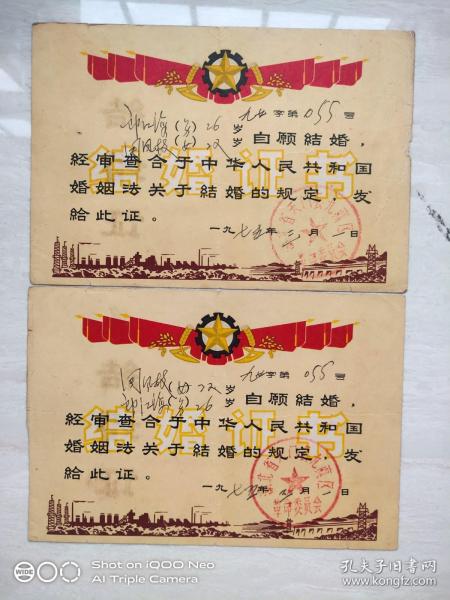 字第055号
(男)26岁
(女)22岁 自愿结婚，
经审查合于中华人民共和国
婚姻法关于结婚的规定，发
给此证。
结婚证书
一九七五年二月一日
字第055号
(女)22岁
(男)26岁 自愿结婚，
经审查合于中华人民共和国
婚姻法关于结婚的规定，发
给此证。
结婚证书
革命委员会
一九七五年二月一日
WIDE
Shot on iQOO Neo
AI Triple Camera
孔夫子旧书网
www.kongfz.com